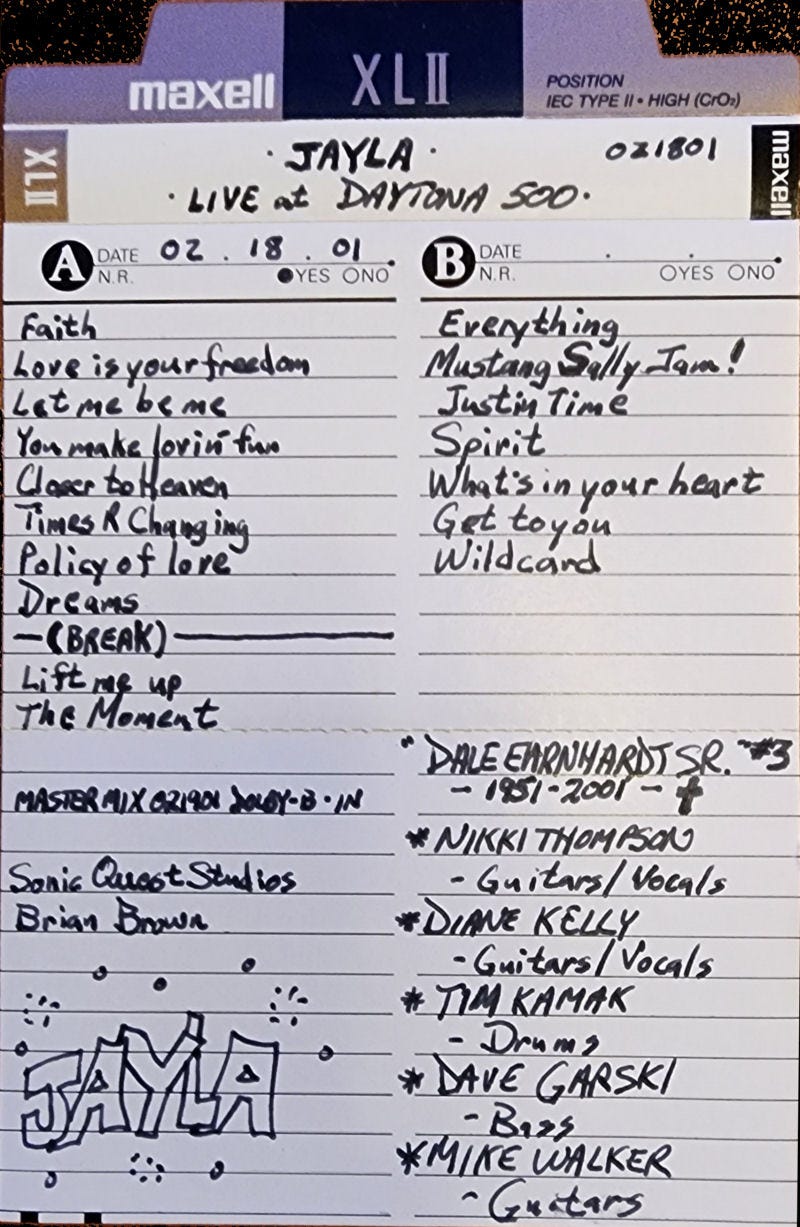 maxell
XLII
POSITION
IEC TYPE II • HIGH (CrO₂)
XLII
· JAYLA ·
021801
· LIVE at DAYTONA 500 ·
maxell
A DATE 02 . 18 . 01
N.R. ●YES ○NO
Faith
Love is your freedom
Let me be me
You make lovin' fun
Closer to Heaven
Times R Changing
Policy of love
Dreams
—(BREAK)—
Lift me up
The Moment
MASTER MIX 021901 DOLBY-B · IN
Sonic Quest Studios
Brian Brown
JAYLA
B DATE . .
N.R. ○YES ○NO
Everything
Mustang Sally Jam!
Just in Time
Spirit
What's in your heart
Get to you
Wildcard
" DALE EARNHARDT SR. " #3
- 1951-2001 - ✝
* NIKKI THOMPSON
- Guitars/Vocals
* DIANE KELLY
- Guitars/Vocals
* TIM KAMAK
- Drums
* DAVE GARSKI
- Bass
* MIKE WALKER
- Guitars